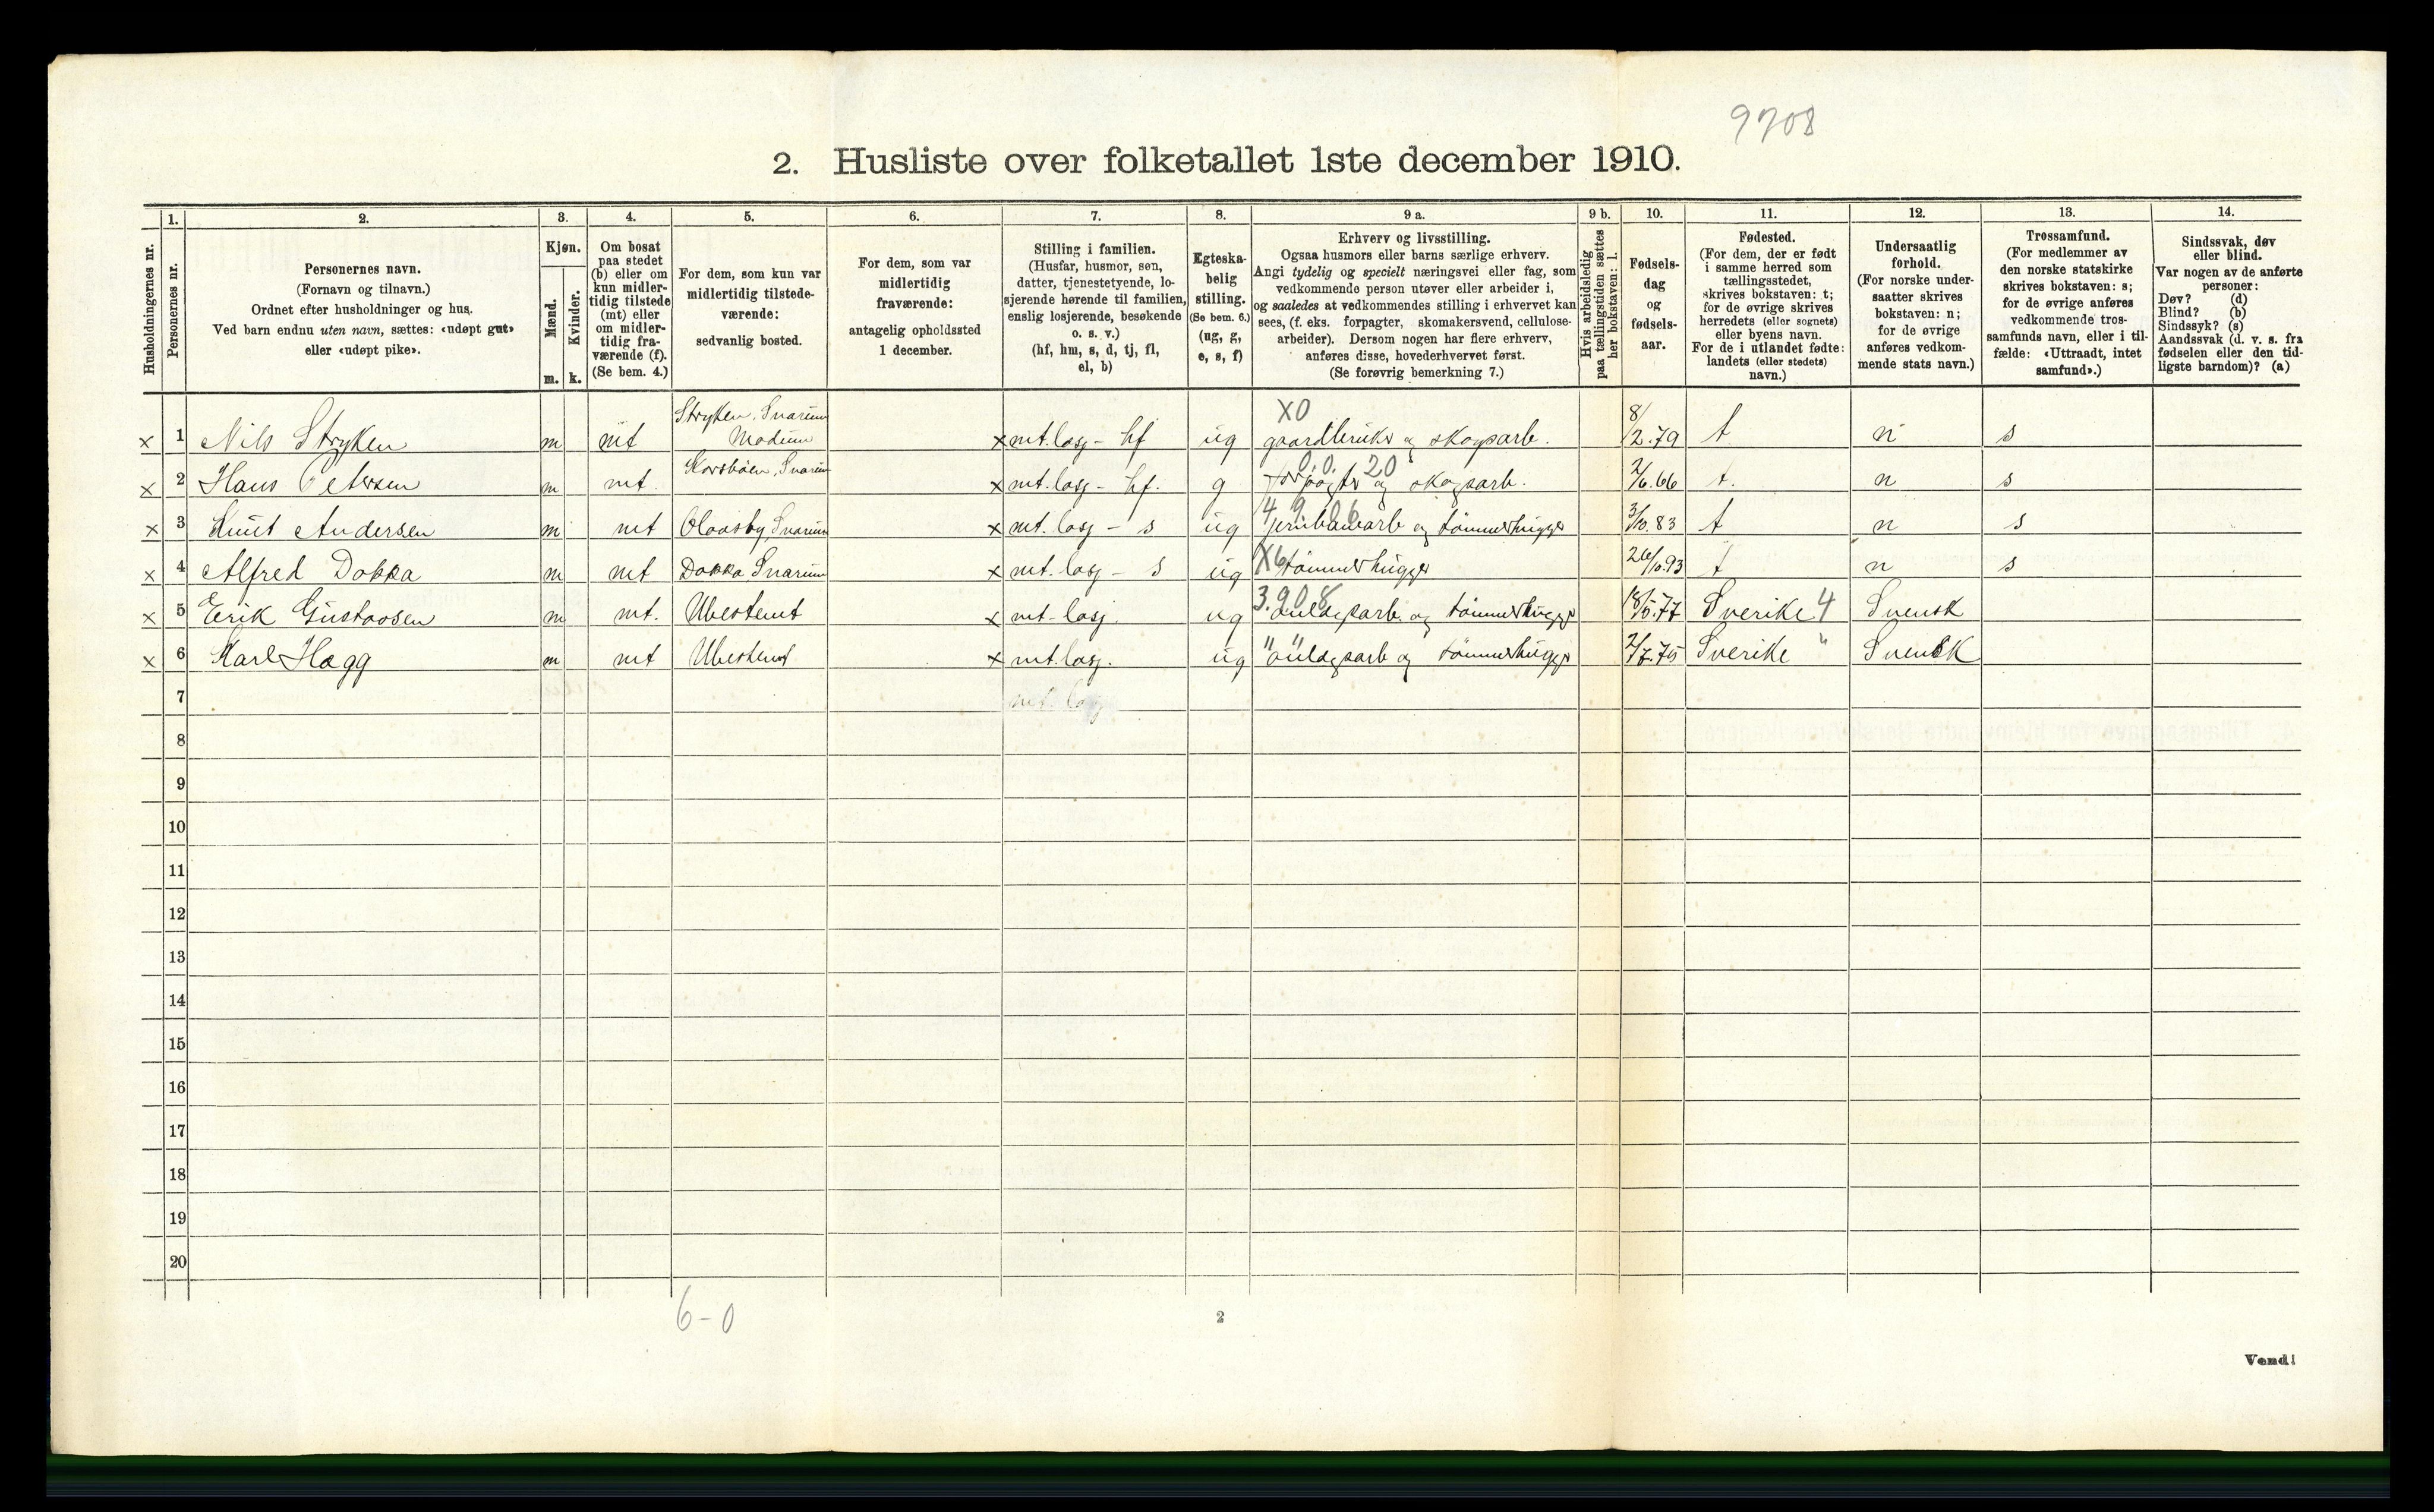 9708
2. Husliste over folketallet 1ste december 1910.
1. 2. 3. 4. 5. 6. 7. 8. 9 a. 9 b. 10. 11. 12. 13. 14.
Husholdningernes nr.
Personernes nr.
Personernes navn.
(Fornavn og tilnavn.)
Ordnet efter husholdninger og hus.
Ved barn endnu uten navn, sættes: «udøpt gut»
eller «udøpt pike».
Kjøn.
Mænd.
Kvinder.
m. k.
Om bosat
paa stedet
(b) eller om
kun midler-
tidig tilstede
(mt) eller
om midler-
tidig fra-
værende (f).
(Se bem. 4.)
For dem, som kun var
midlertidig tilstede-
værende:
sedvanlig bosted.
For dem, som var
midlertidig
fraværende:
antagelig opholdssted
1 december.
Stilling i familien.
(Husfar, husmor, søn,
datter, tjenestetyende, lo-
sjerende hørende til familien,
enslig losjerende, besøkende
o. s. v.)
(hf, hm, s, d, tj, fl,
el, b)
Egteska-
belig
stilling.
(Se bem. 6.)
(ug, g,
e, s, f)
Erhverv og livsstilling.
Ogsaa husmors eller barns særlige erhverv.
Angi tydelig og specielt næringsvei eller fag, som
vedkommende person utøver eller arbeider i,
og saaledes at vedkommendes stilling i erhvervet kan
sees, (f. eks. forpagter, skomakersvend, cellulose-
arbeider). Dersom nogen har flere erhverv,
anføres disse, hovederhvervet først.
(Se forøvrig bemerkning 7.)
Hvis arbeidsledig
paa tællingstiden sættes
her bokstaven: l.
Fødsels-
dag
og
fødsels-
aar.
Fødested.
(For dem, der er født
i samme herred som
tællingsstedet,
skrives bokstaven: t;
for de øvrige skrives
herredets (eller sognets)
eller byens navn.
For de i utlandet fødte:
landets (eller stedets)
navn.)
Undersaatlig
forhold.
(For norske under-
saatter skrives
bokstaven: n;
for de øvrige
anføres vedkom-
mende stats navn.)
Trossamfund.
(For medlemmer av
den norske statskirke
skrives bokstaven: s;
for de øvrige anføres
vedkommende tros-
samfunds navn, eller i til-
fælde: «Uttraadt, intet
samfund».)
Sindssvak, døv
eller blind.
Var nogen av de anførte
personer:
Døv? (d)
Blind? (b)
Sindssyk? (s)
Aandssvak (d. v. s. fra
fødselen eller den tid-
ligste barndom)? (a)
Stryken, Snarum X0
x 1 Nils Stryken m mt Modum x mt. losj - hf ug gaardbruker og skogsarb. 8/2.79 t n s
0.0. 20
x 2 Hans Petersen m mt. Korsböen, Snarum x mt. losj - hf. g og skogsarb. 2/6.66 t. n s
x 3 Knut Andersen m mt Olaasby, Snarum x mt. losj - s ug jernbanearb og tömmerhugger 3/10.83 t n s
x 4 Alfred Dokka m mt Dokka Snarum x mt. losj - s ug X6 tömmerhugger 26/10.93 t n s
3.908
x 5 Erik Gustavsen m mt. Ubestemt x mt- losj. ug anlægsarb. og tömmerhugger 18/5.77 Sverike 4 Svensk
x 6 Karl Hægg m mt Ubestemt x mt. losj. ug " " anlægsarb og tömmerhugger 2/7.75 Sverike " Svensk
7 mt. losj
8
9
10
11
12
13
14
15
16
17
18
19
20
6-0
2
Vend!